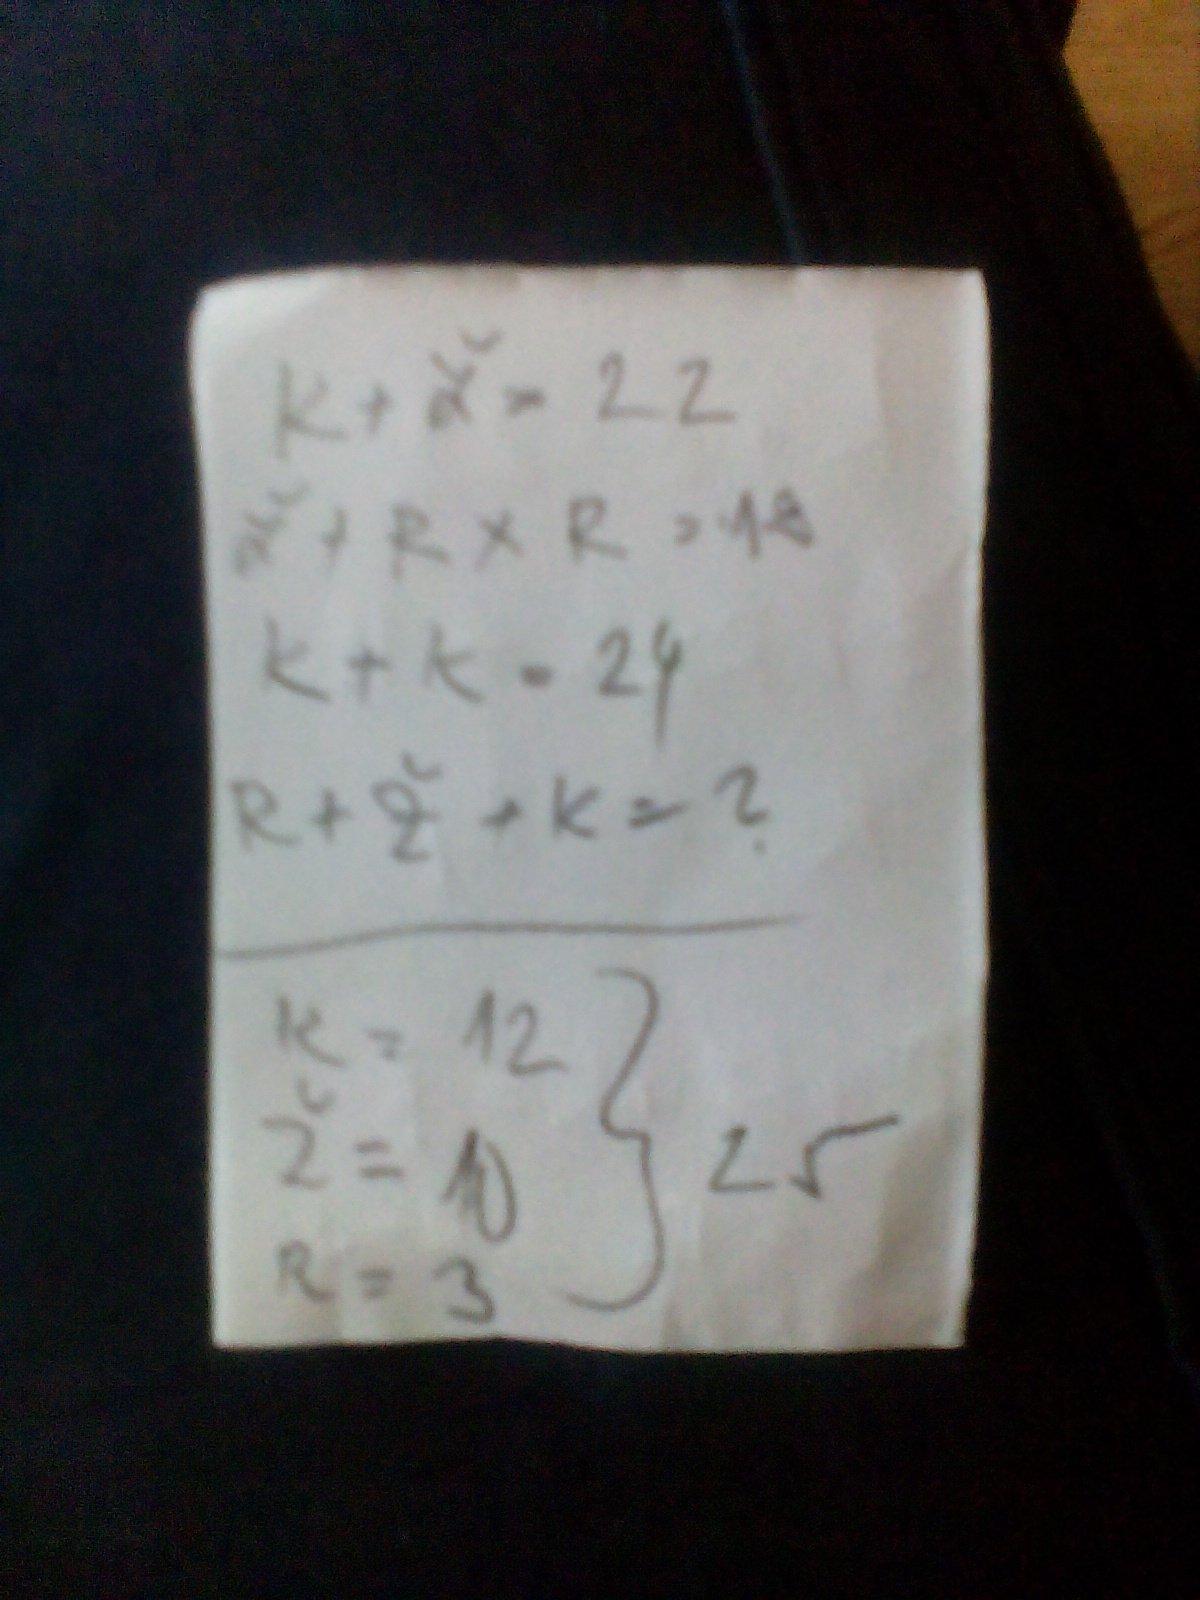 K + Ž = 22
Ž + R x R = 18
K + K = 24
R + Ž + K = ?
K = 12
Ž = 10
R = 3
25